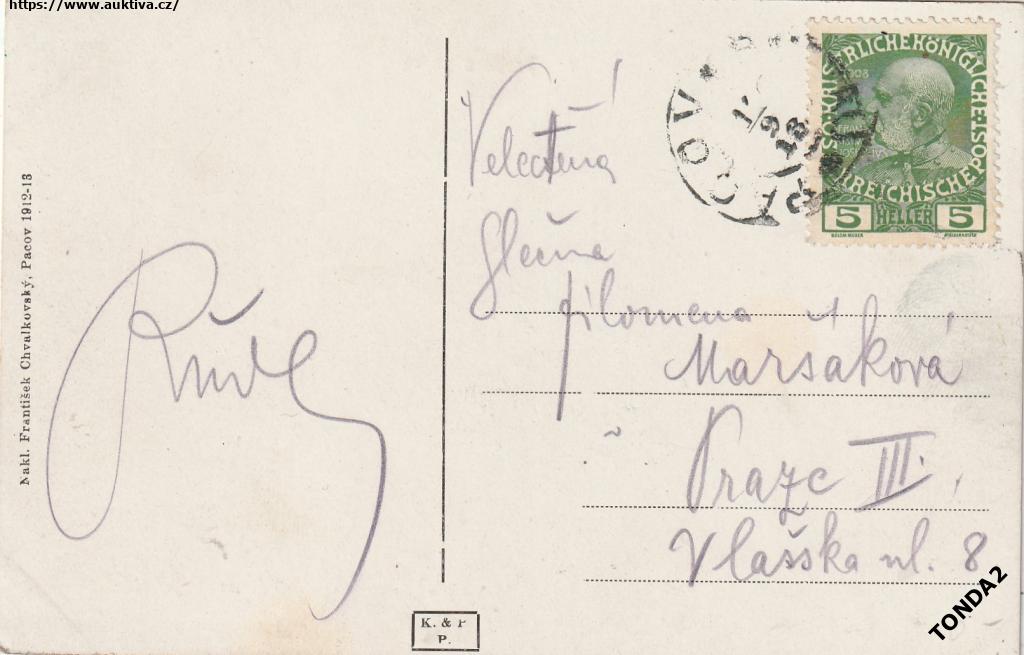 https://www.auktiva.cz/
Nakl. František Chvalkovský, Pacov 1912-13
KAISERLICHE KÖNIGLICHE
ÖSTERREICHISCHE POST
1908
5 HELLER 5
Velectěná
Slečna
Filomena
Maršáková
Praze III.
Vlašská ul. 8
K. & P
P.
TONDA2